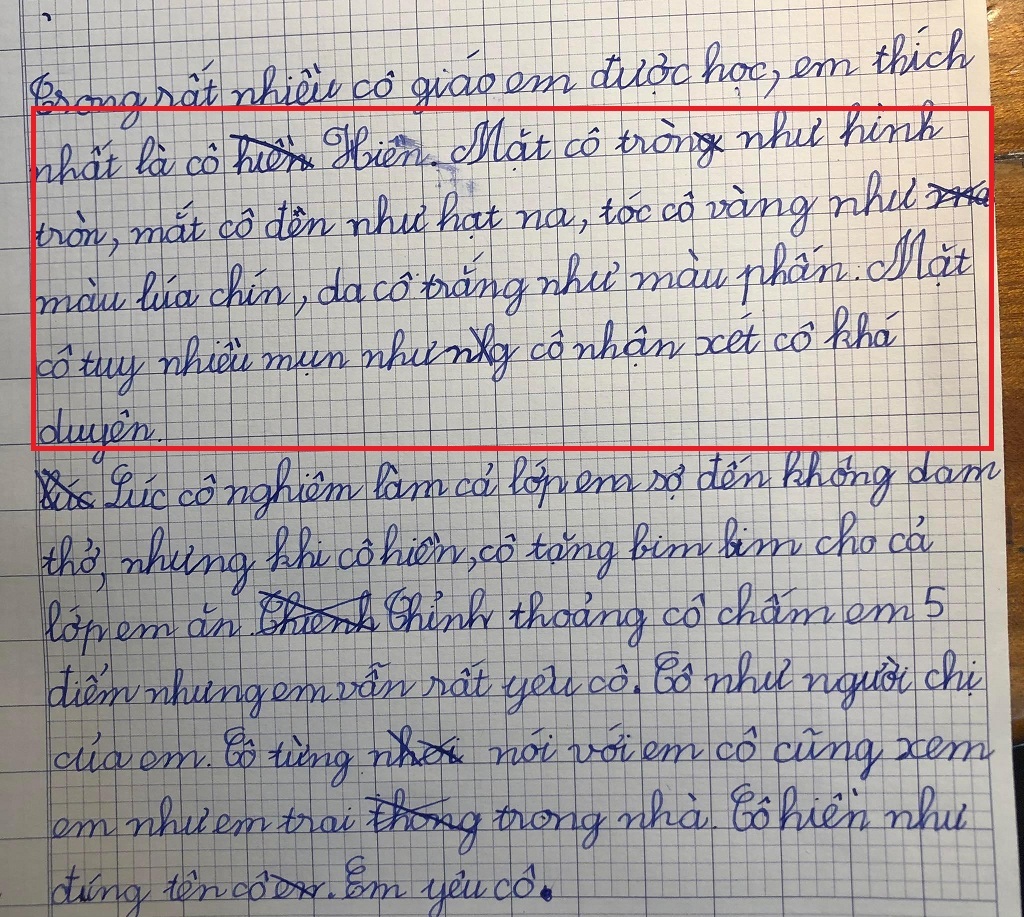 Trong rất nhiều cô giáo em được học, em thích
nhất là cô hiền Hiền. Mặt cô tròn như hình
tròn, mắt cô đên như hạt na, tóc cô vàng như
màu lúa chín, da cô trắng như màu phấn. Mặt
cô tuy nhiều mụn nhưng cô nhận xét cô khá
duyên.
Lúc Lúc cô nghiêm làm cả lớp em sợ đến không dam
thở, nhưng khi cô hiền, cô tặng bim bim cho cả
lớp em ăn. Thỉnh thoảng cô chấm em 5
điểm nhưng em vẫn rất yêu cô. Cô như người chị
của em. Cô từng nói với em cô cũng xem
em như em trai trong nhà. Cô hiền như
đúng tên cô. Em yêu cô.